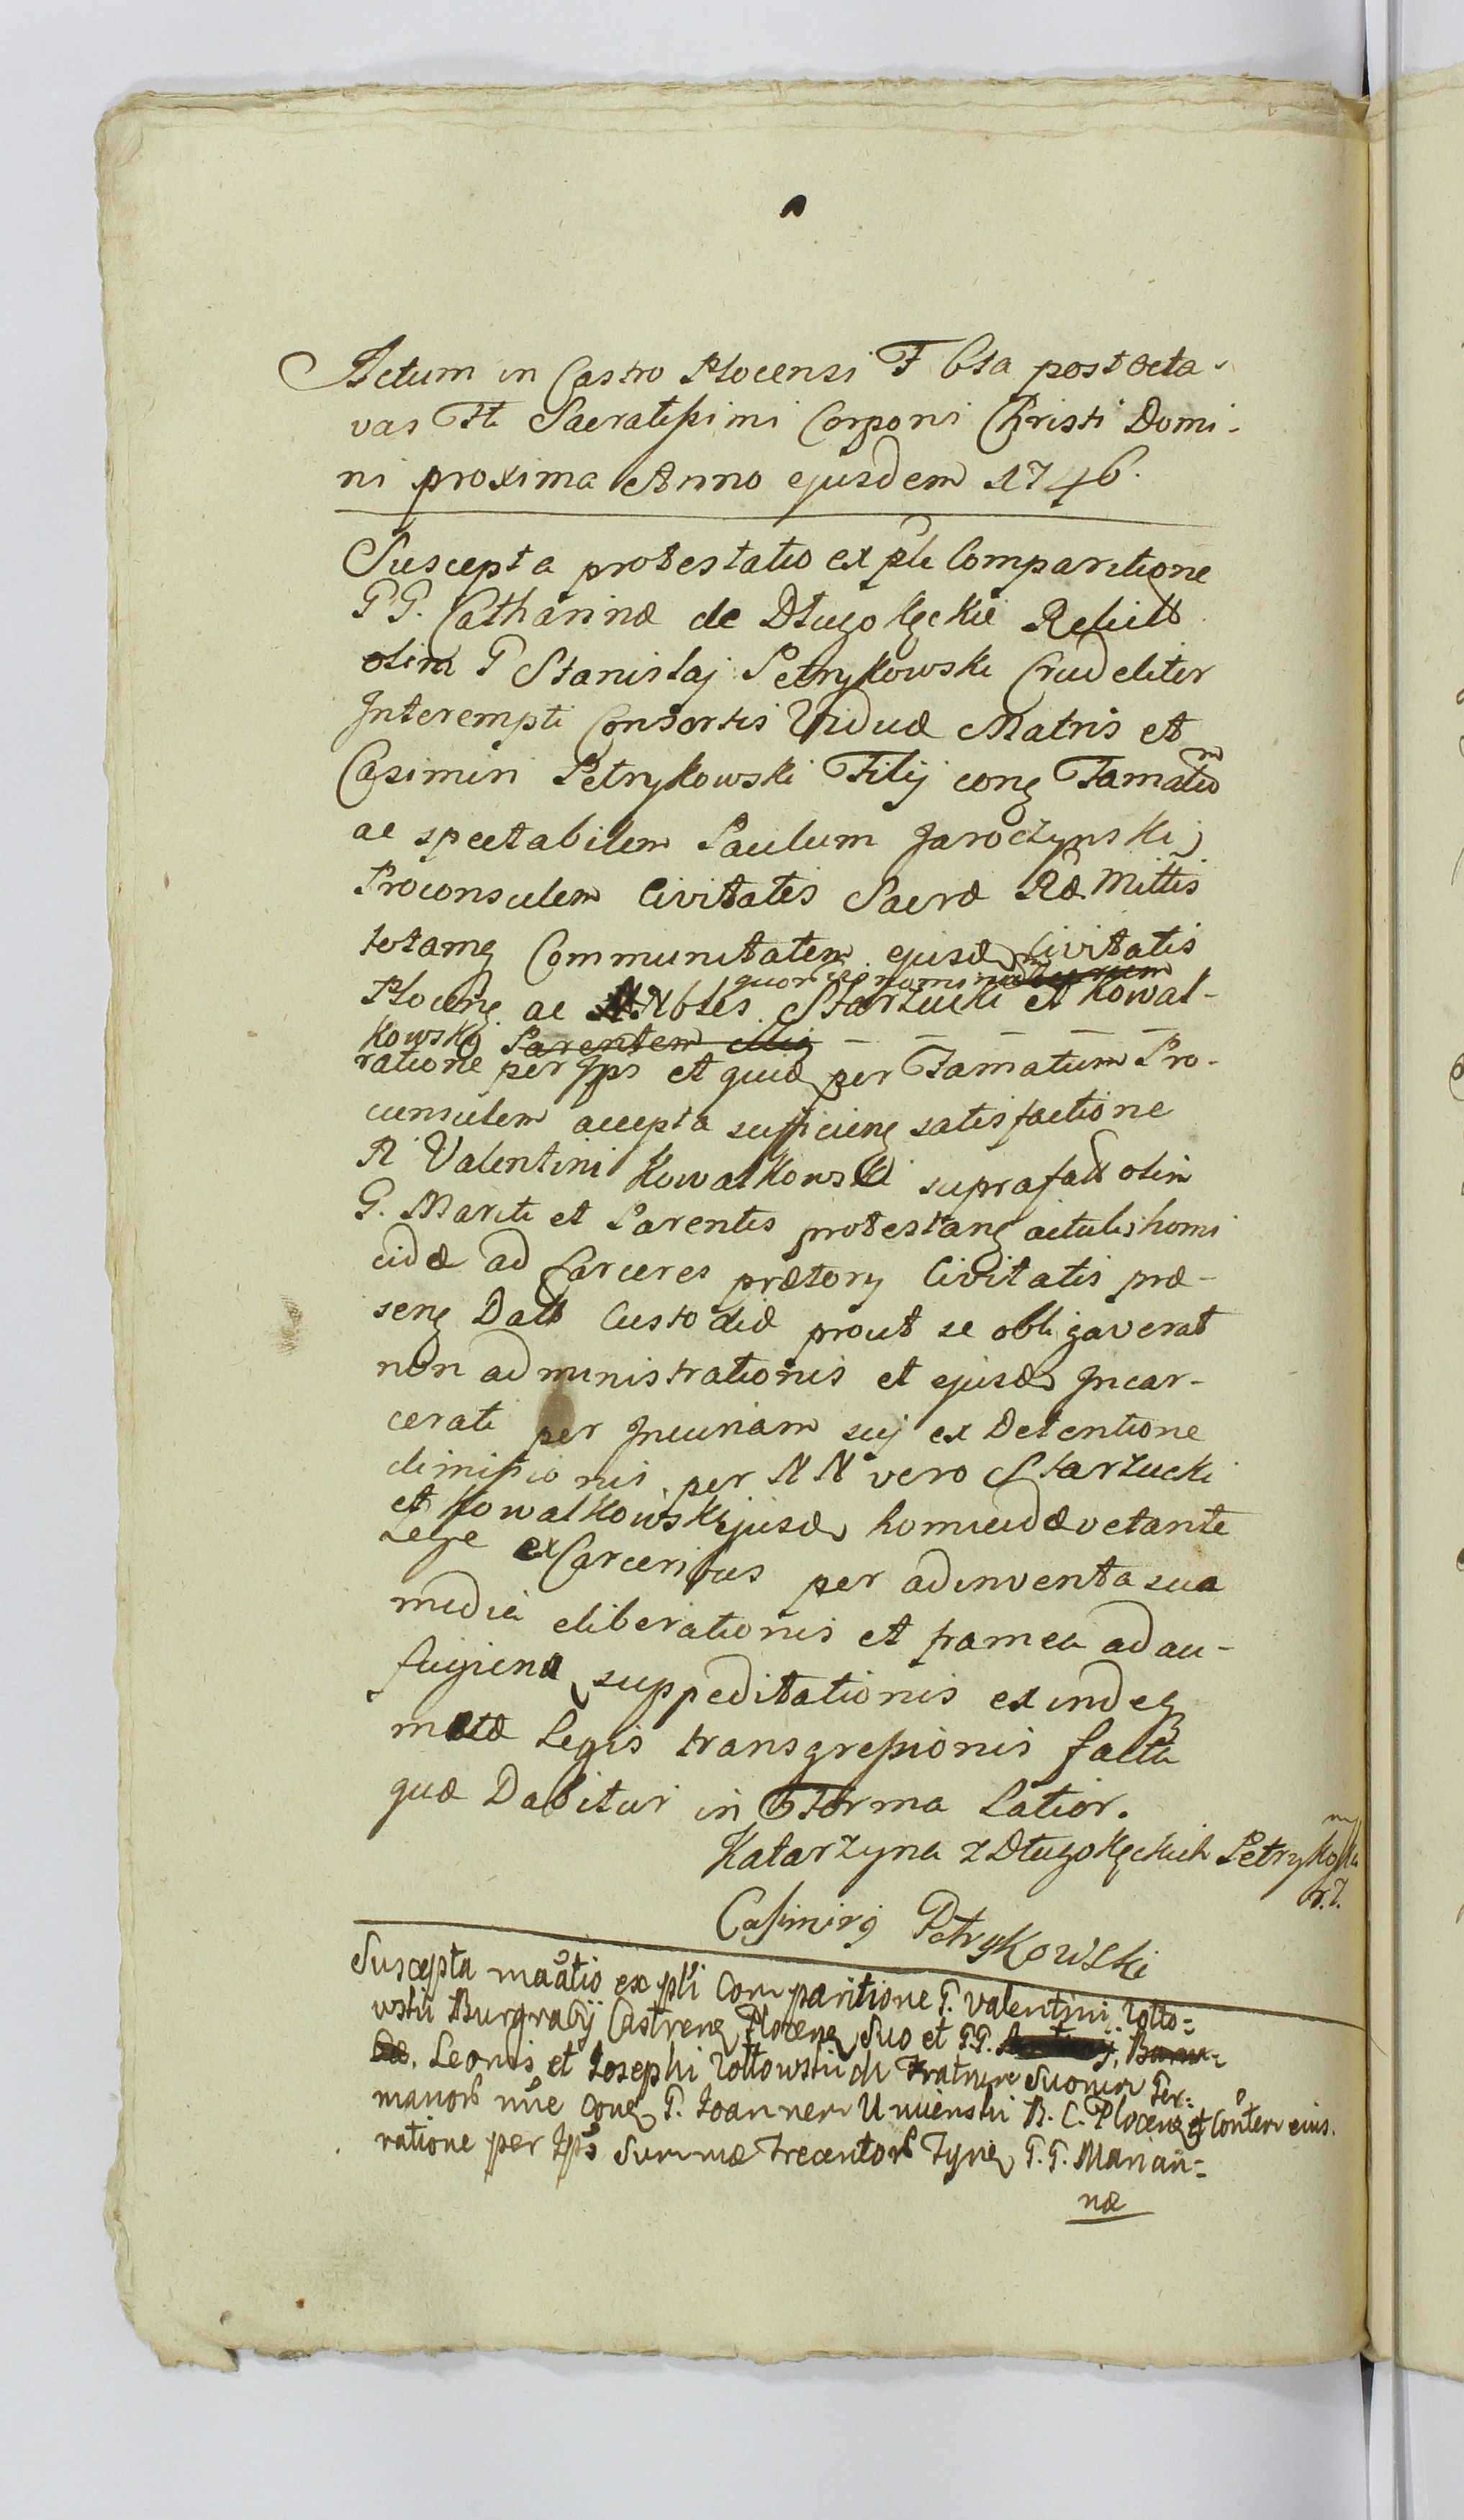 Actum in Castro Plocensi F 6ta post octa-
vas Fti Sacratissimi Corporis Christi Domi-
ni proxima Anno ejusdem 1746.
Suscepta protestatio ex pli Comparitione
GG. Catharinæ de Długołęckie Relictæ
olim G Stanislaj Petrykowski Crudeliter
Interempti Consortis Viduæ Matris et
Casimiri Petrykowski Filij conq Famatum
ac spectabilem Paulum Jaroczynski
Proconsulem Civitatis Sacræ Ræ Mttis
totamq Communitatem ejusd Civitatis
quor nomina
Plocenq ac NNbles Starzucki et Kowal-
kowski Parentem
ratione per Ips et quid per Famatum Pro-
cunsulem accepta sufficienq satisfactione
R Valentini Kowalkowski suprafatt olim
G. Mariti et Parentis protestanq actulis homi
cidæ ad Carceres prætory Civitatis præ-
senq Datt Custodiæ prout se obligaverat
non administrationis et ejusd Incar-
cerati per Incuriam suj ex Detentione
dimissionis per NN vero Starzucki
et Kowalkowski ejusd homicidæ vetante
Lege ex Carceribus per adinventa sua
media eliberationis et framea ad au-
fugiend suppeditationis exindeq
Legis transgressionis facta
quæ Dabitur in Forma Latior.
Katarzyna z Długołęckich Petrykoska
Casimirq Petrykowski
Suscepta maãtio ex pli Comparitione G. Valentini Zolto=
wski Burgrabij Castrenq Plocenq Suo et G.G.
Leonis et Josephi Zoltowskich Fratrum Suorum Ger=
manorum nñe Conq G. Joannem Umienski B. C. Plocenq et Cońtem eius.
ratione per Ips Summæ Trecentorum Tynq G. G. Marian=
næ